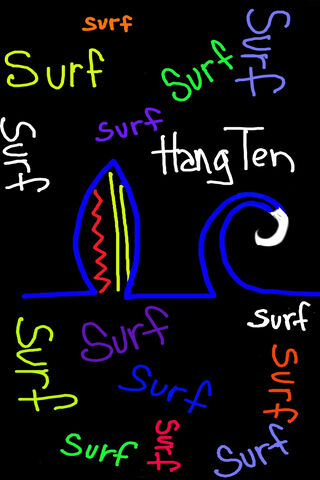 surf
Surf
Surf
Surf
Surf
surf
Hang Ten
surf
Surf
Surf
Surf
Surf
Surf
Surf
Surf